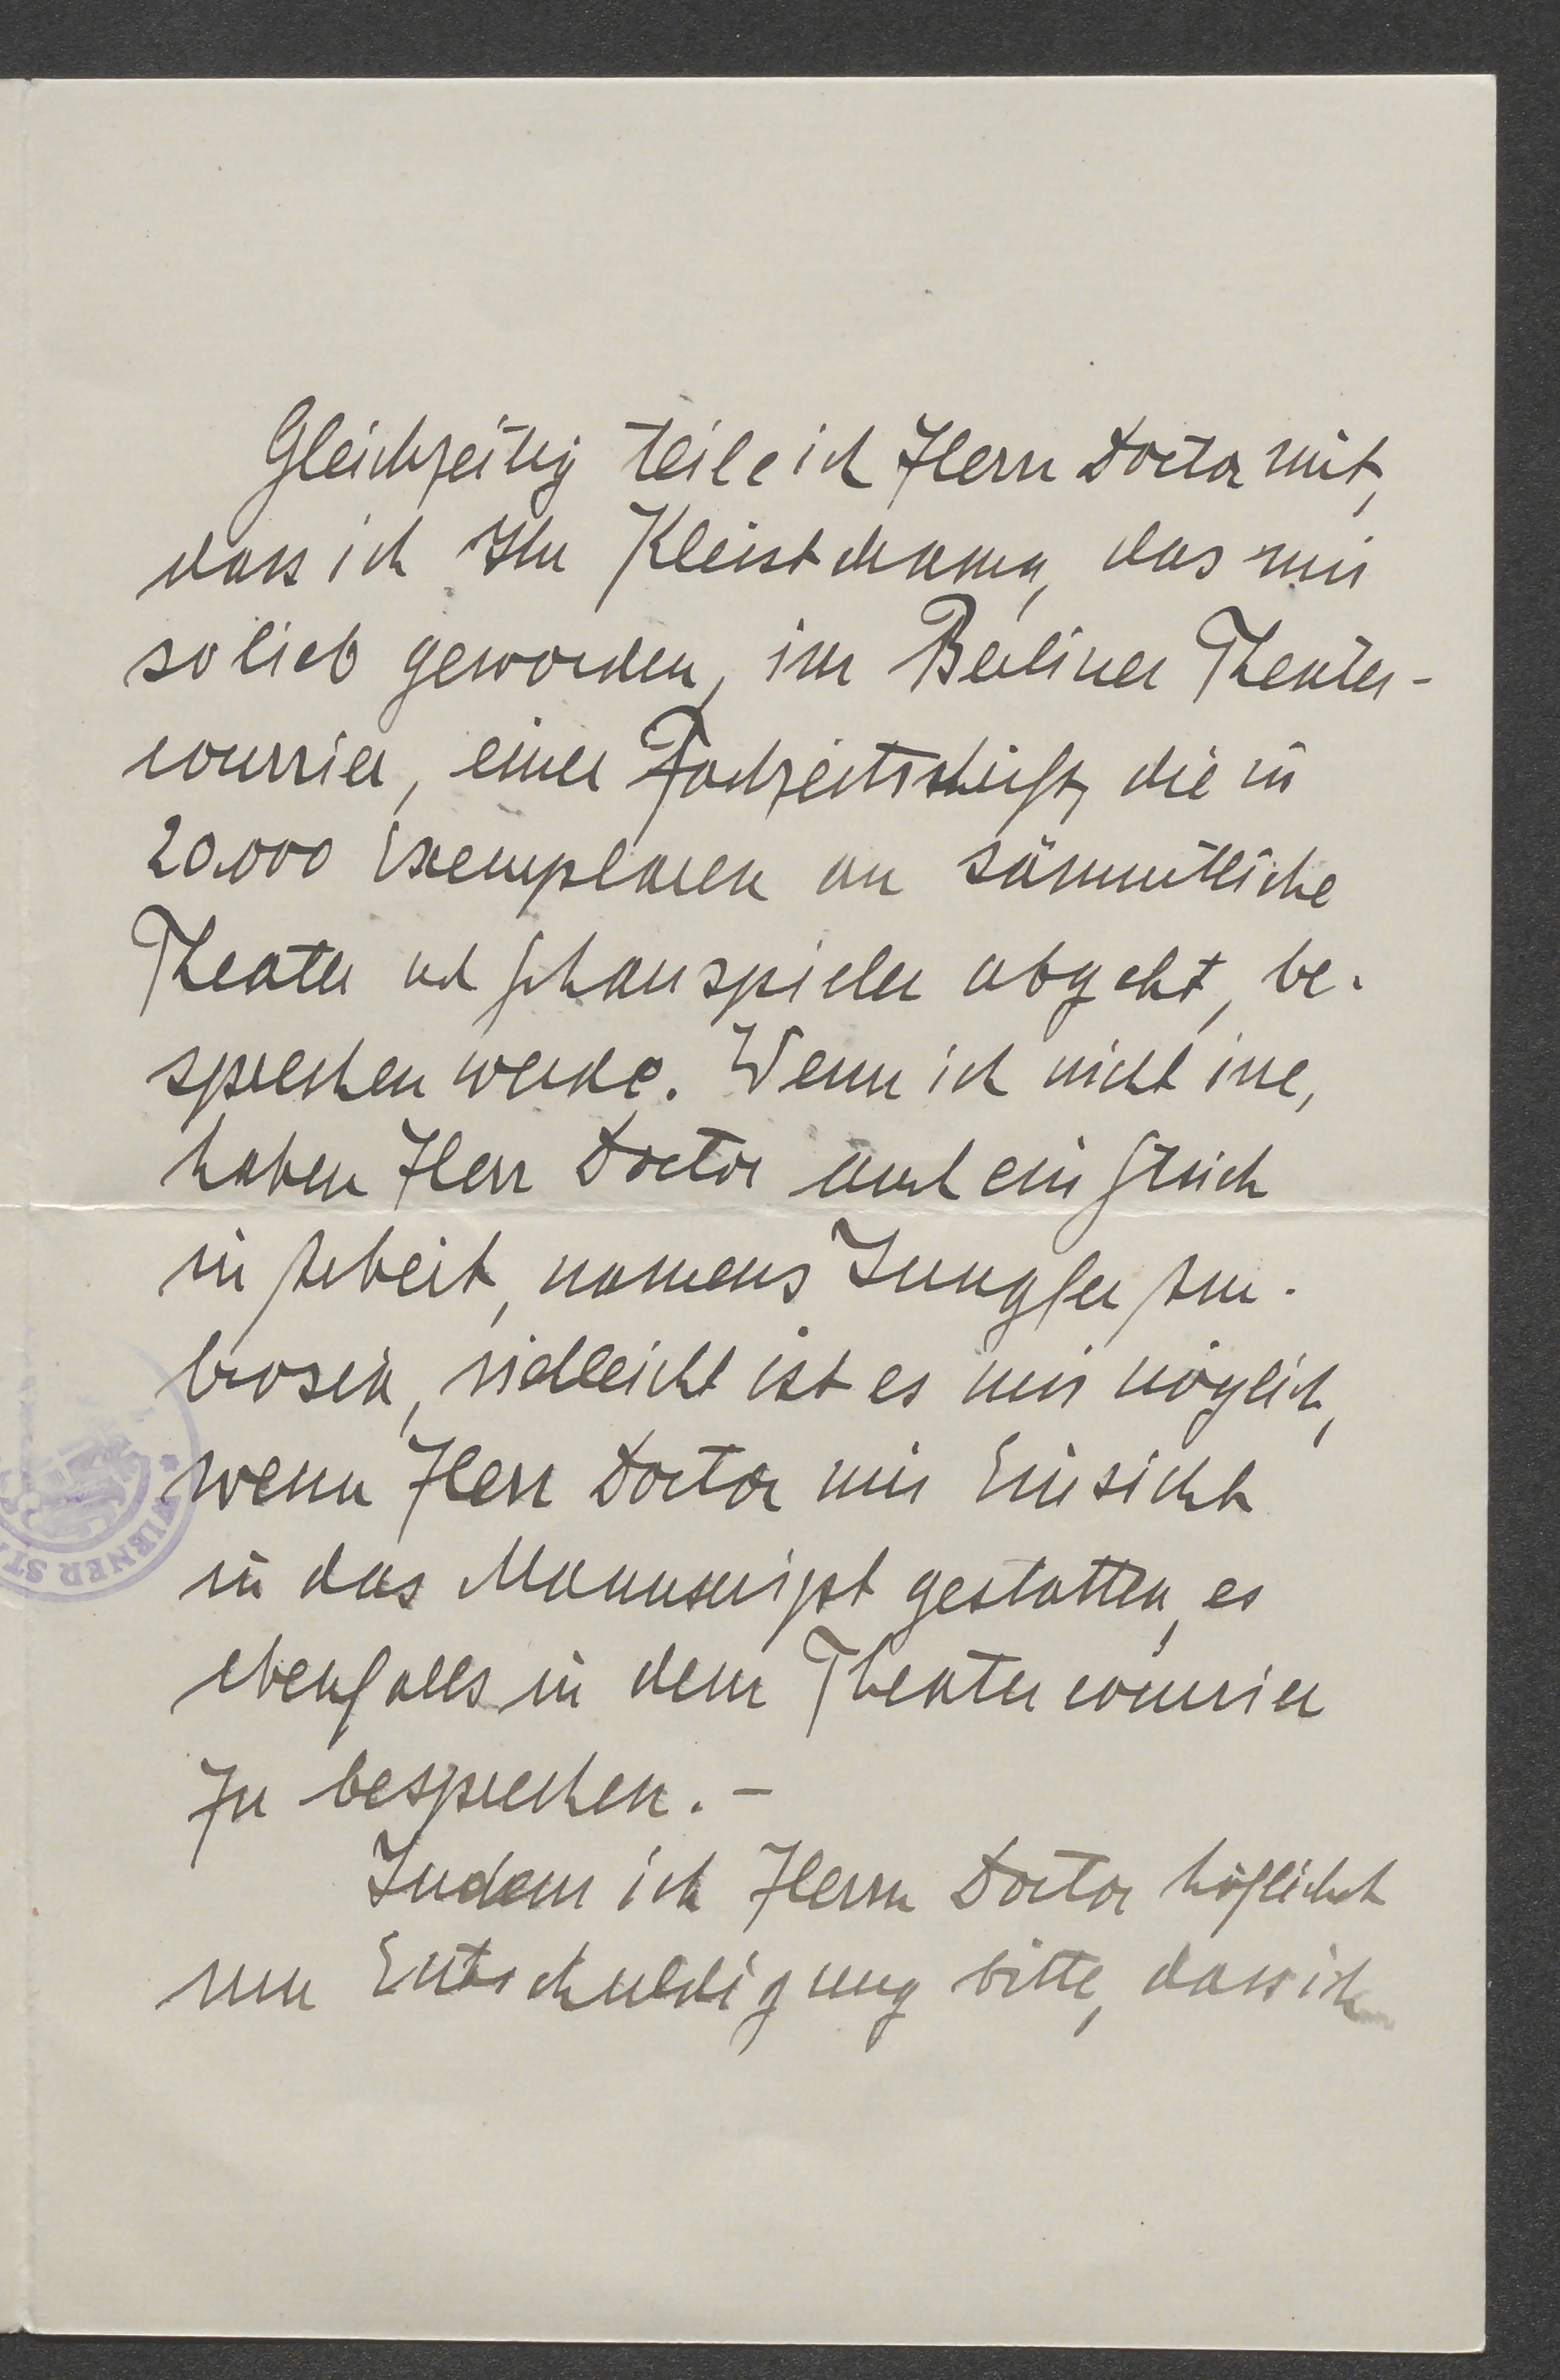 Gleichzeitig teile ich Herrn Doctor mit,
dass ich Ihr Kleistdrama, das mir
so lieb geworden, im Berliner Theater-
courrier, einer Fachzeitschrift, die in
20.000 Exemplaren an sämmtliche
Theater ud Schauspieler abgeht, be-
sprechen werde. Wenn ich nicht irre,
haben Herr Doctor auch ein Stück
in Arbeit, namens Jungfer Am-
brosia, vielleicht ist es mir möglich,
wenn Herr Doctor mir Einsicht
in das Manuscript gestatten, es
ebenfalls in dem Theatercourrier
zu besprechen. –
Indem ich Herrn Doctor höflichst
um Entschuldigung bitte, dass ich
WIENER ST